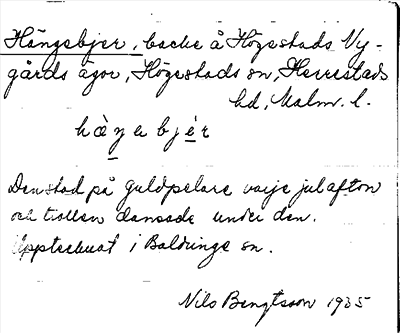 Hängsbjer, backe å Högestads Ny-
gårds ägor, Högestads sn, Herrestads
hd, Malm. l.
Den stod på guldpelare varje julafton
och trollen dansade under den.
Upptecknat i Baldringe sn.
Nils Bengtsson 1935